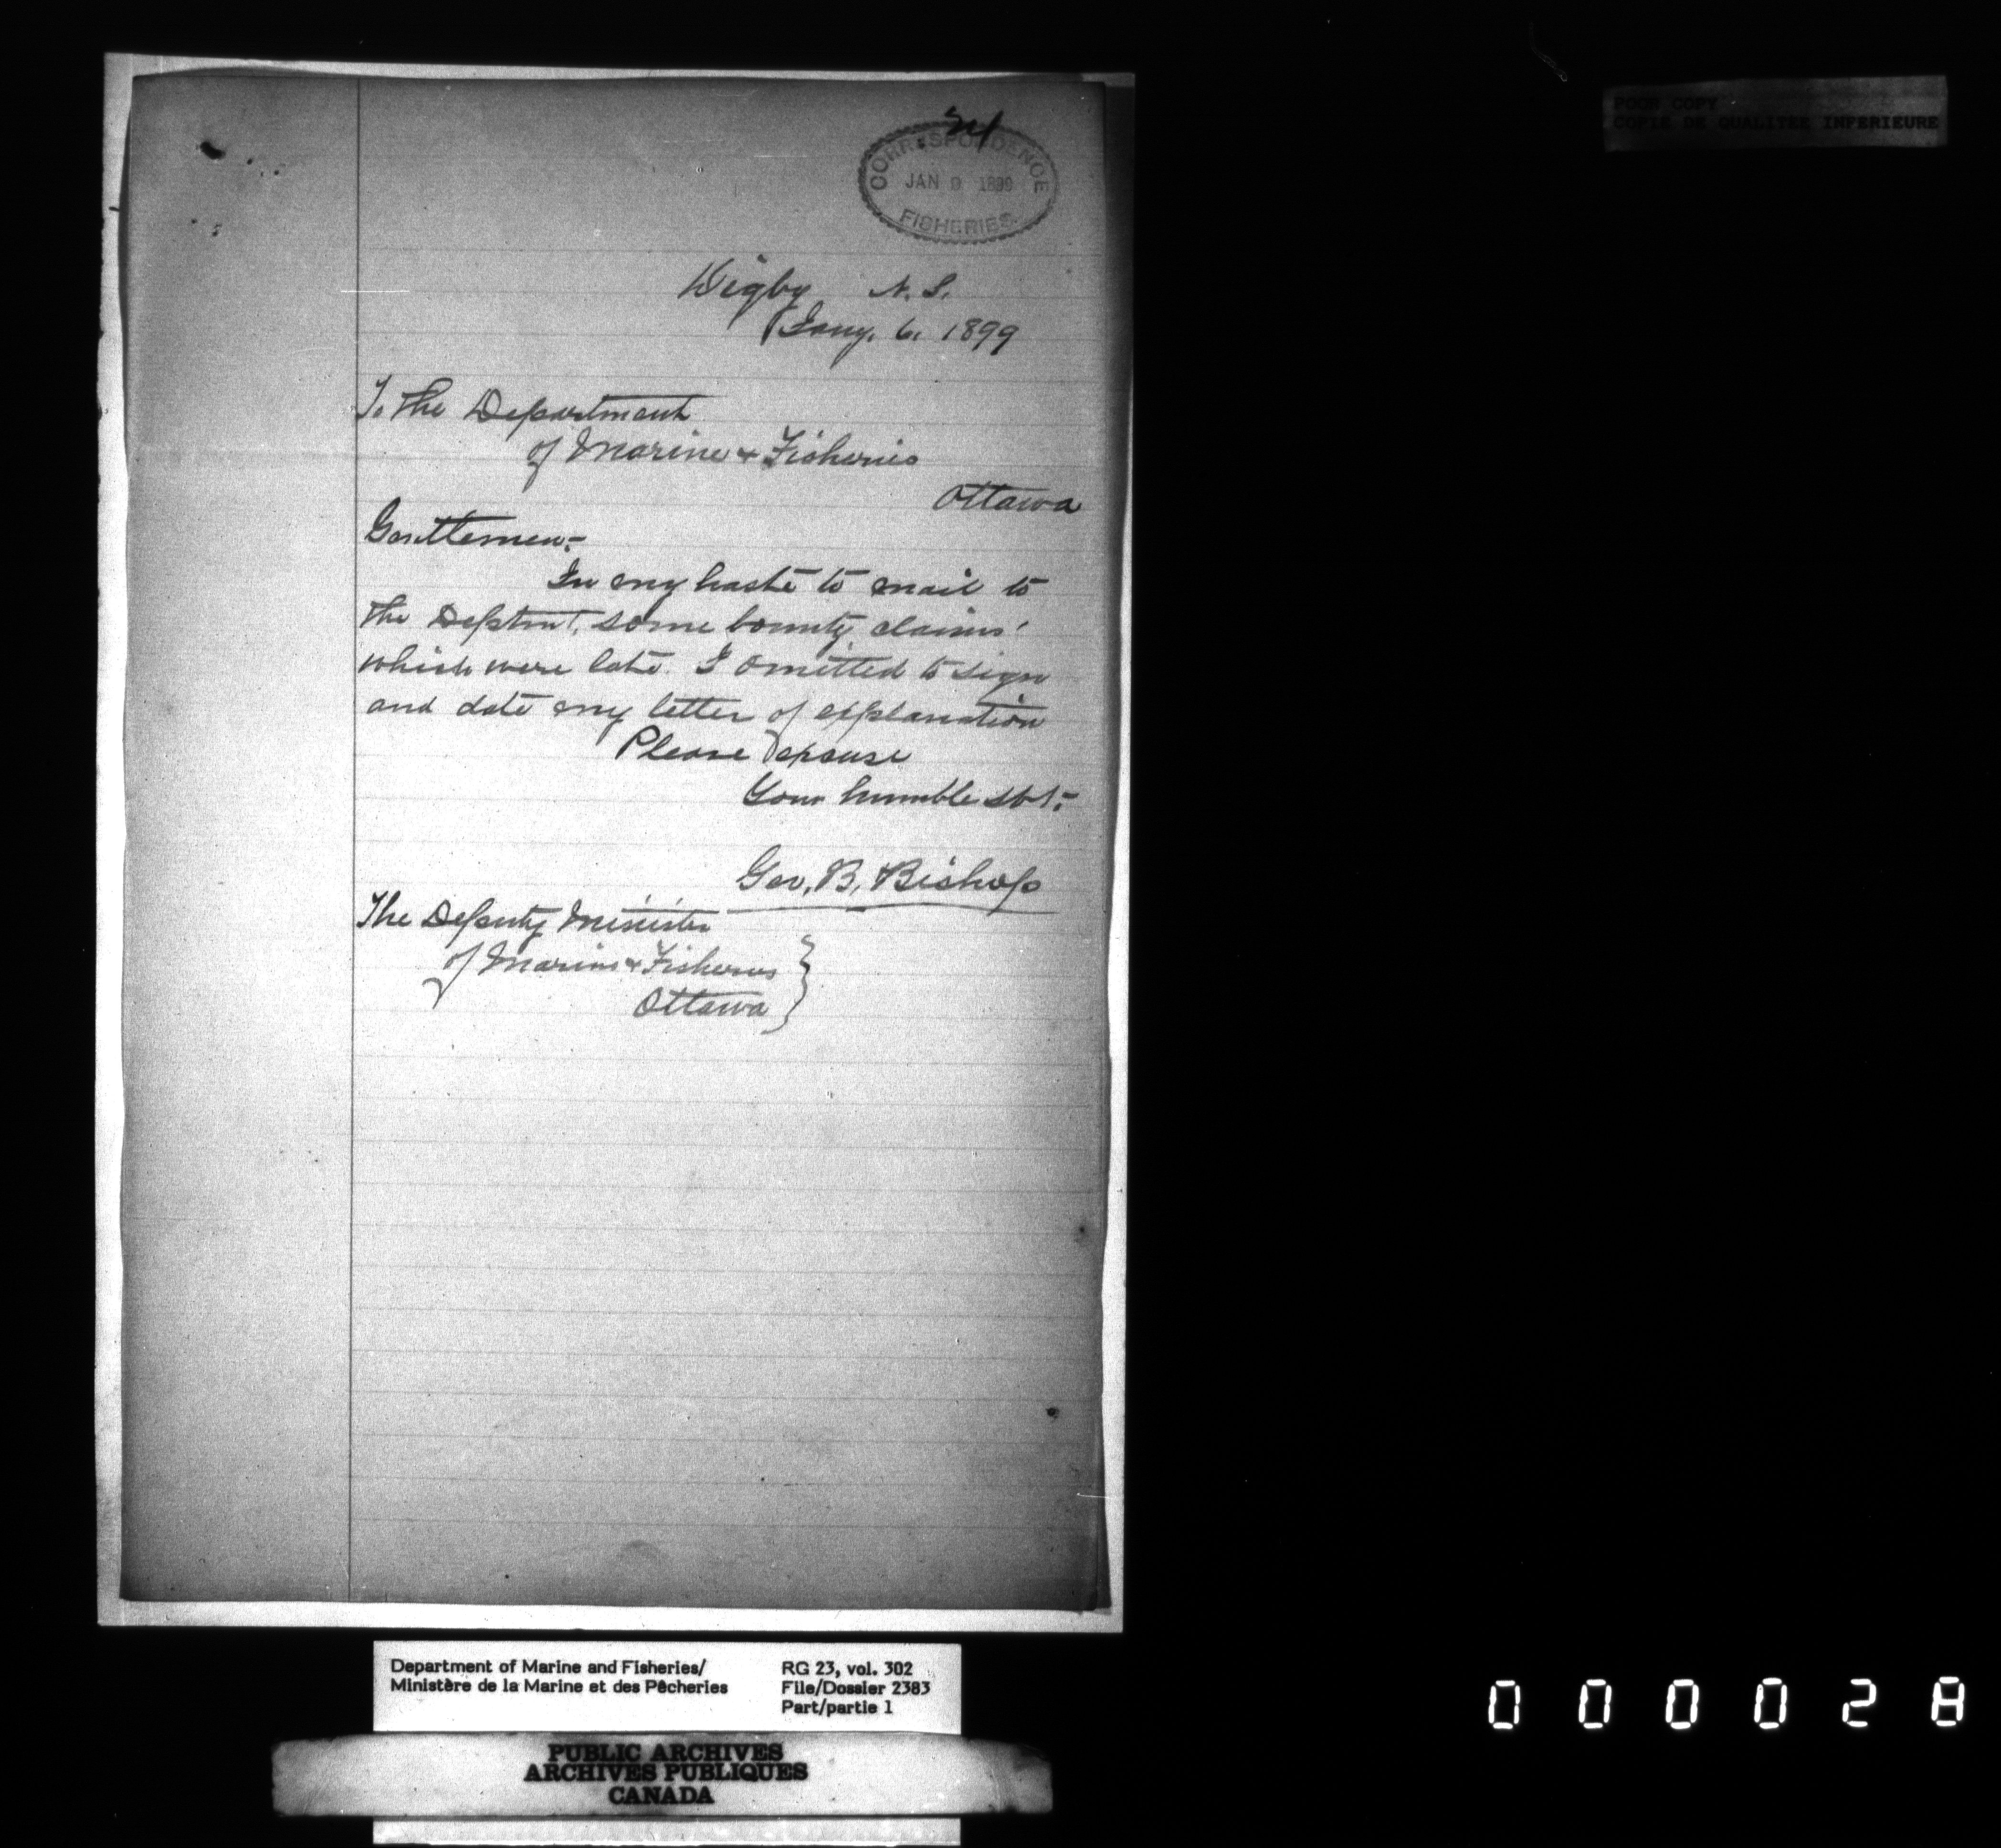 24
CORRESPONDENCE
JAN 9 1899
FISHERIES
Digby N.S.
Jany. 6. 1899
To the Department
of Marine & Fisheries
Ottawa
Gentlemen:-
In my haste to mail to
the Deptmt, some bounty claims'
which were late. I omitted to sign
and date my letter of explanation
Please excuse
Your humble svt:-
Geo. B. Bishop
The Deputy Minister
of Marine & Fisheries
Ottawa
POOR COPY
COPIE DE QUALITEE INFERIEURE
Department of Marine and Fisheries/
Ministère de la Marine et des Pêcheries
RG 23, vol. 302
File/Dossier 2383
Part/partie 1
PUBLIC ARCHIVES
ARCHIVES PUBLIQUES
CANADA
000028